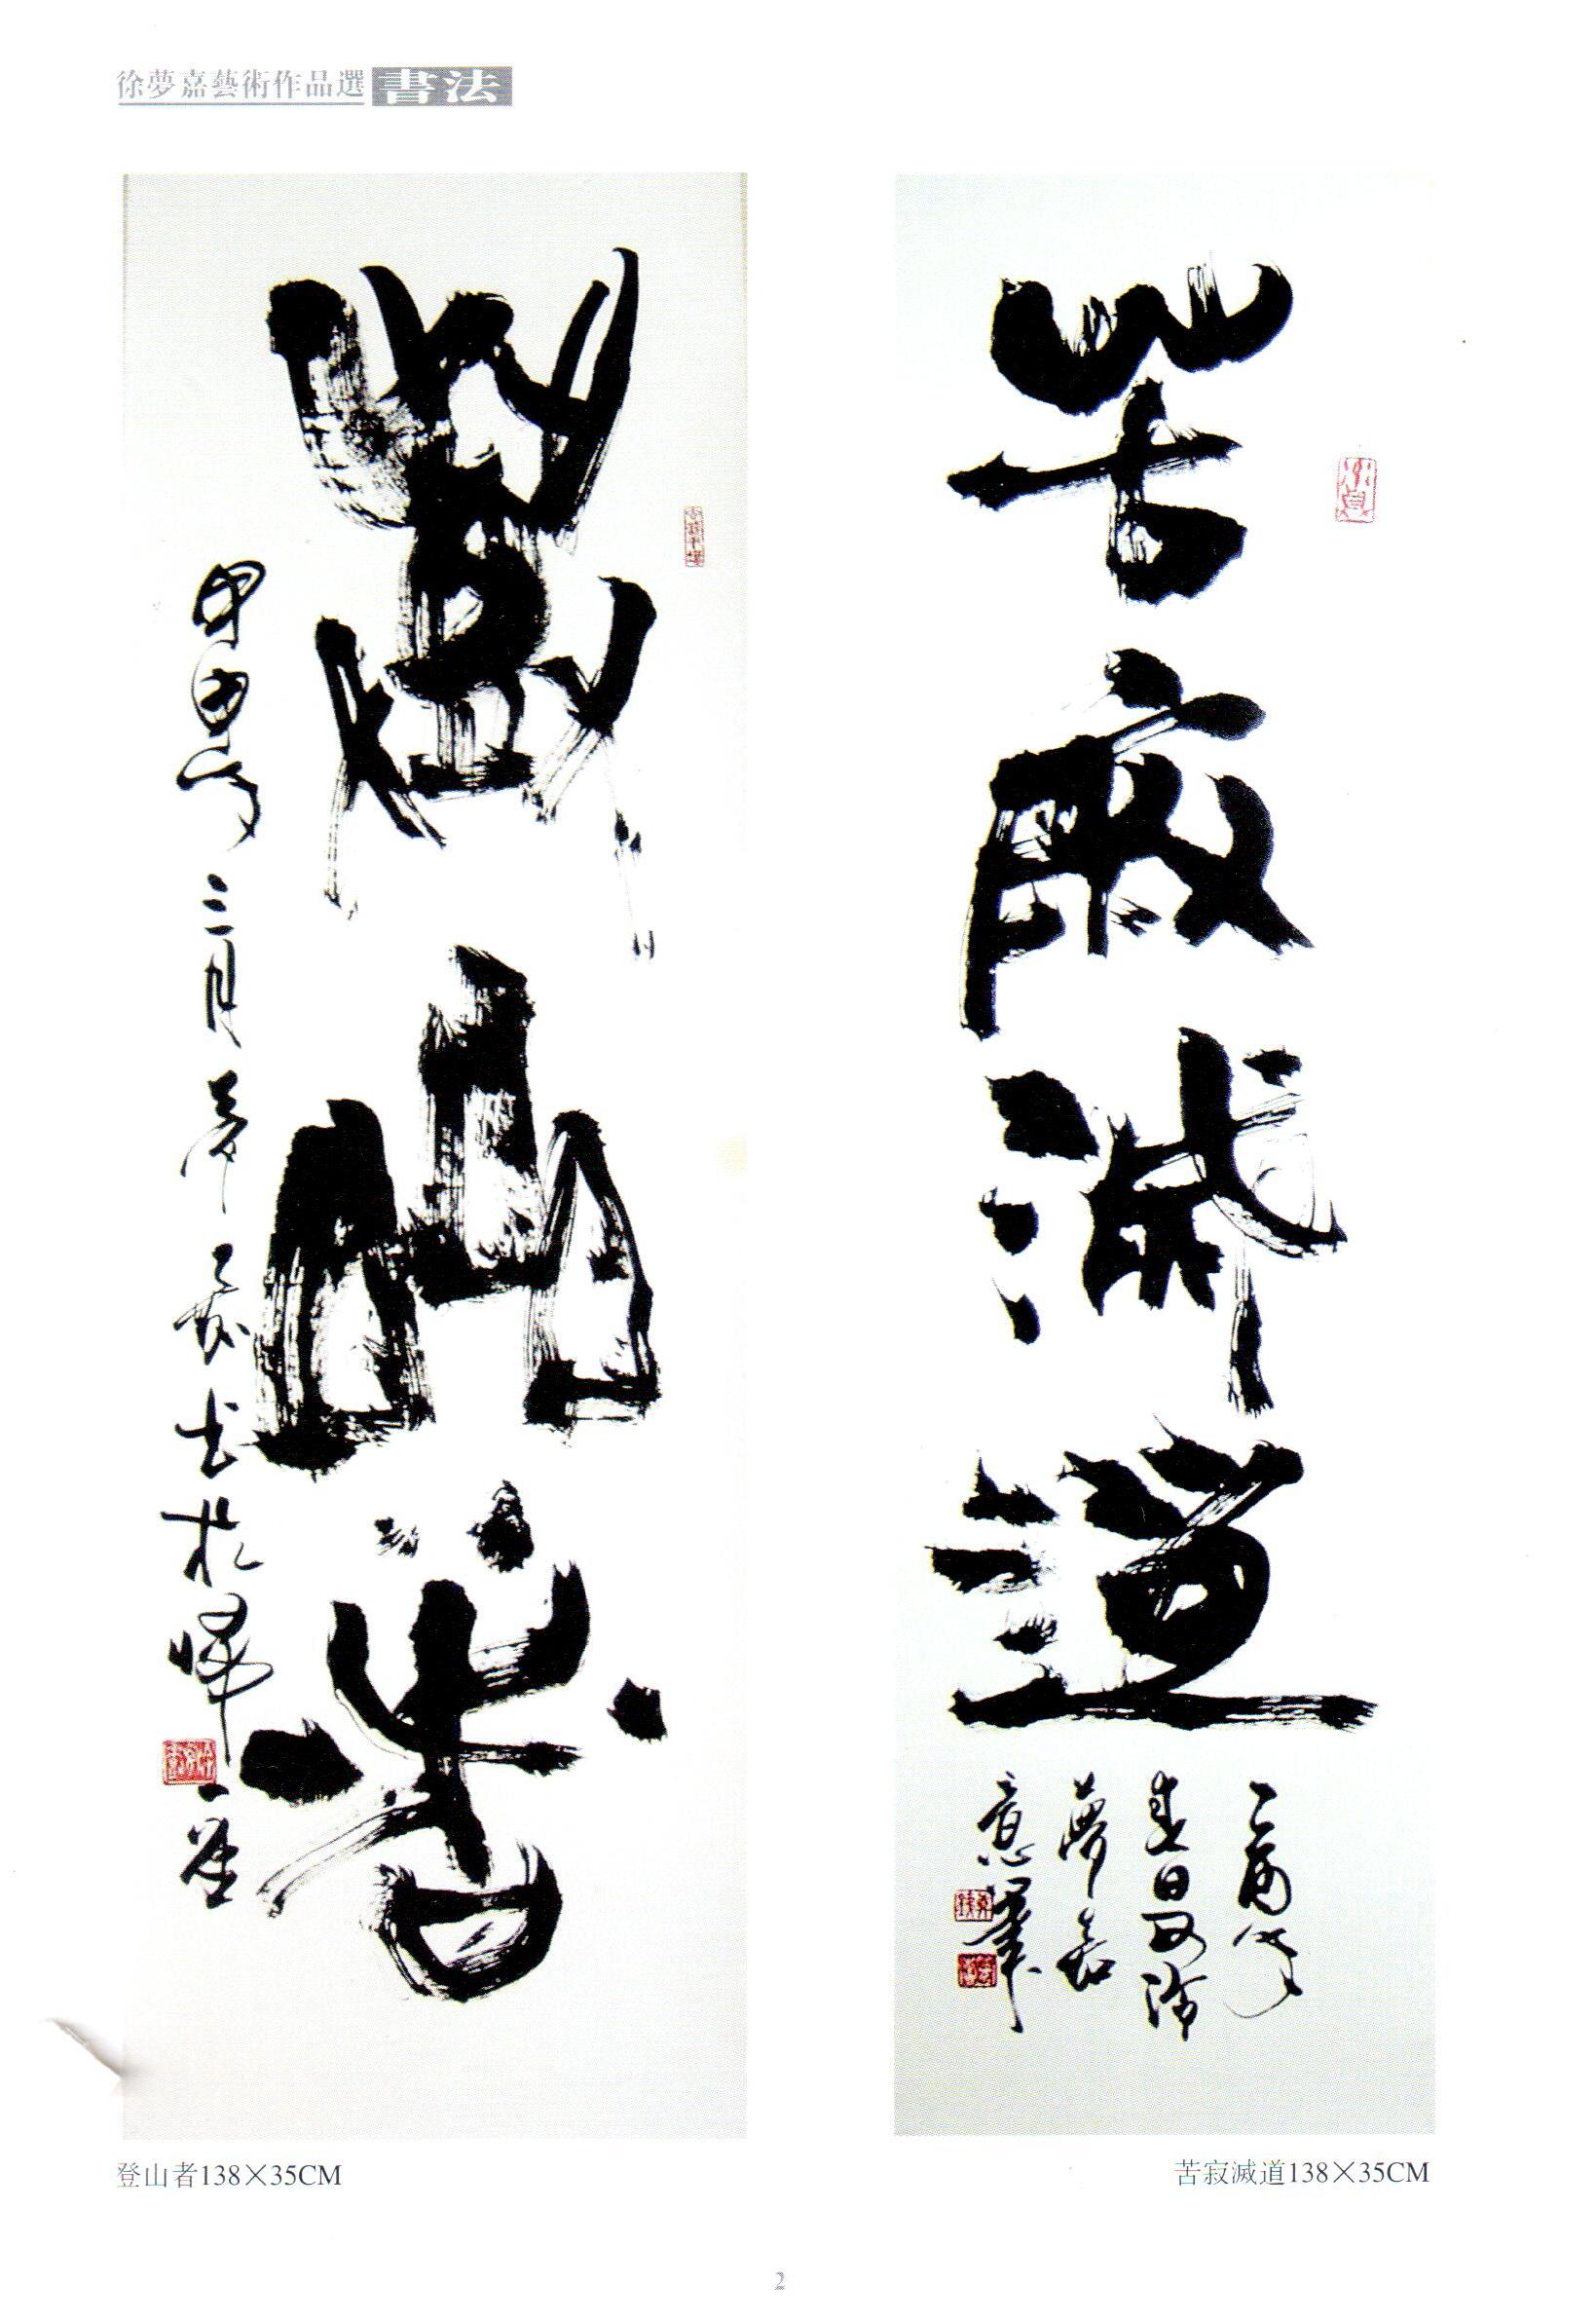 徐夢嘉藝術作品選 書法
登山者
甲申年三月夢嘉書於暉一庵
苦寂滅道
乙酉年
春日又涂
夢嘉
意筆
登山者138×35CM
苦寂滅道138×35CM
2